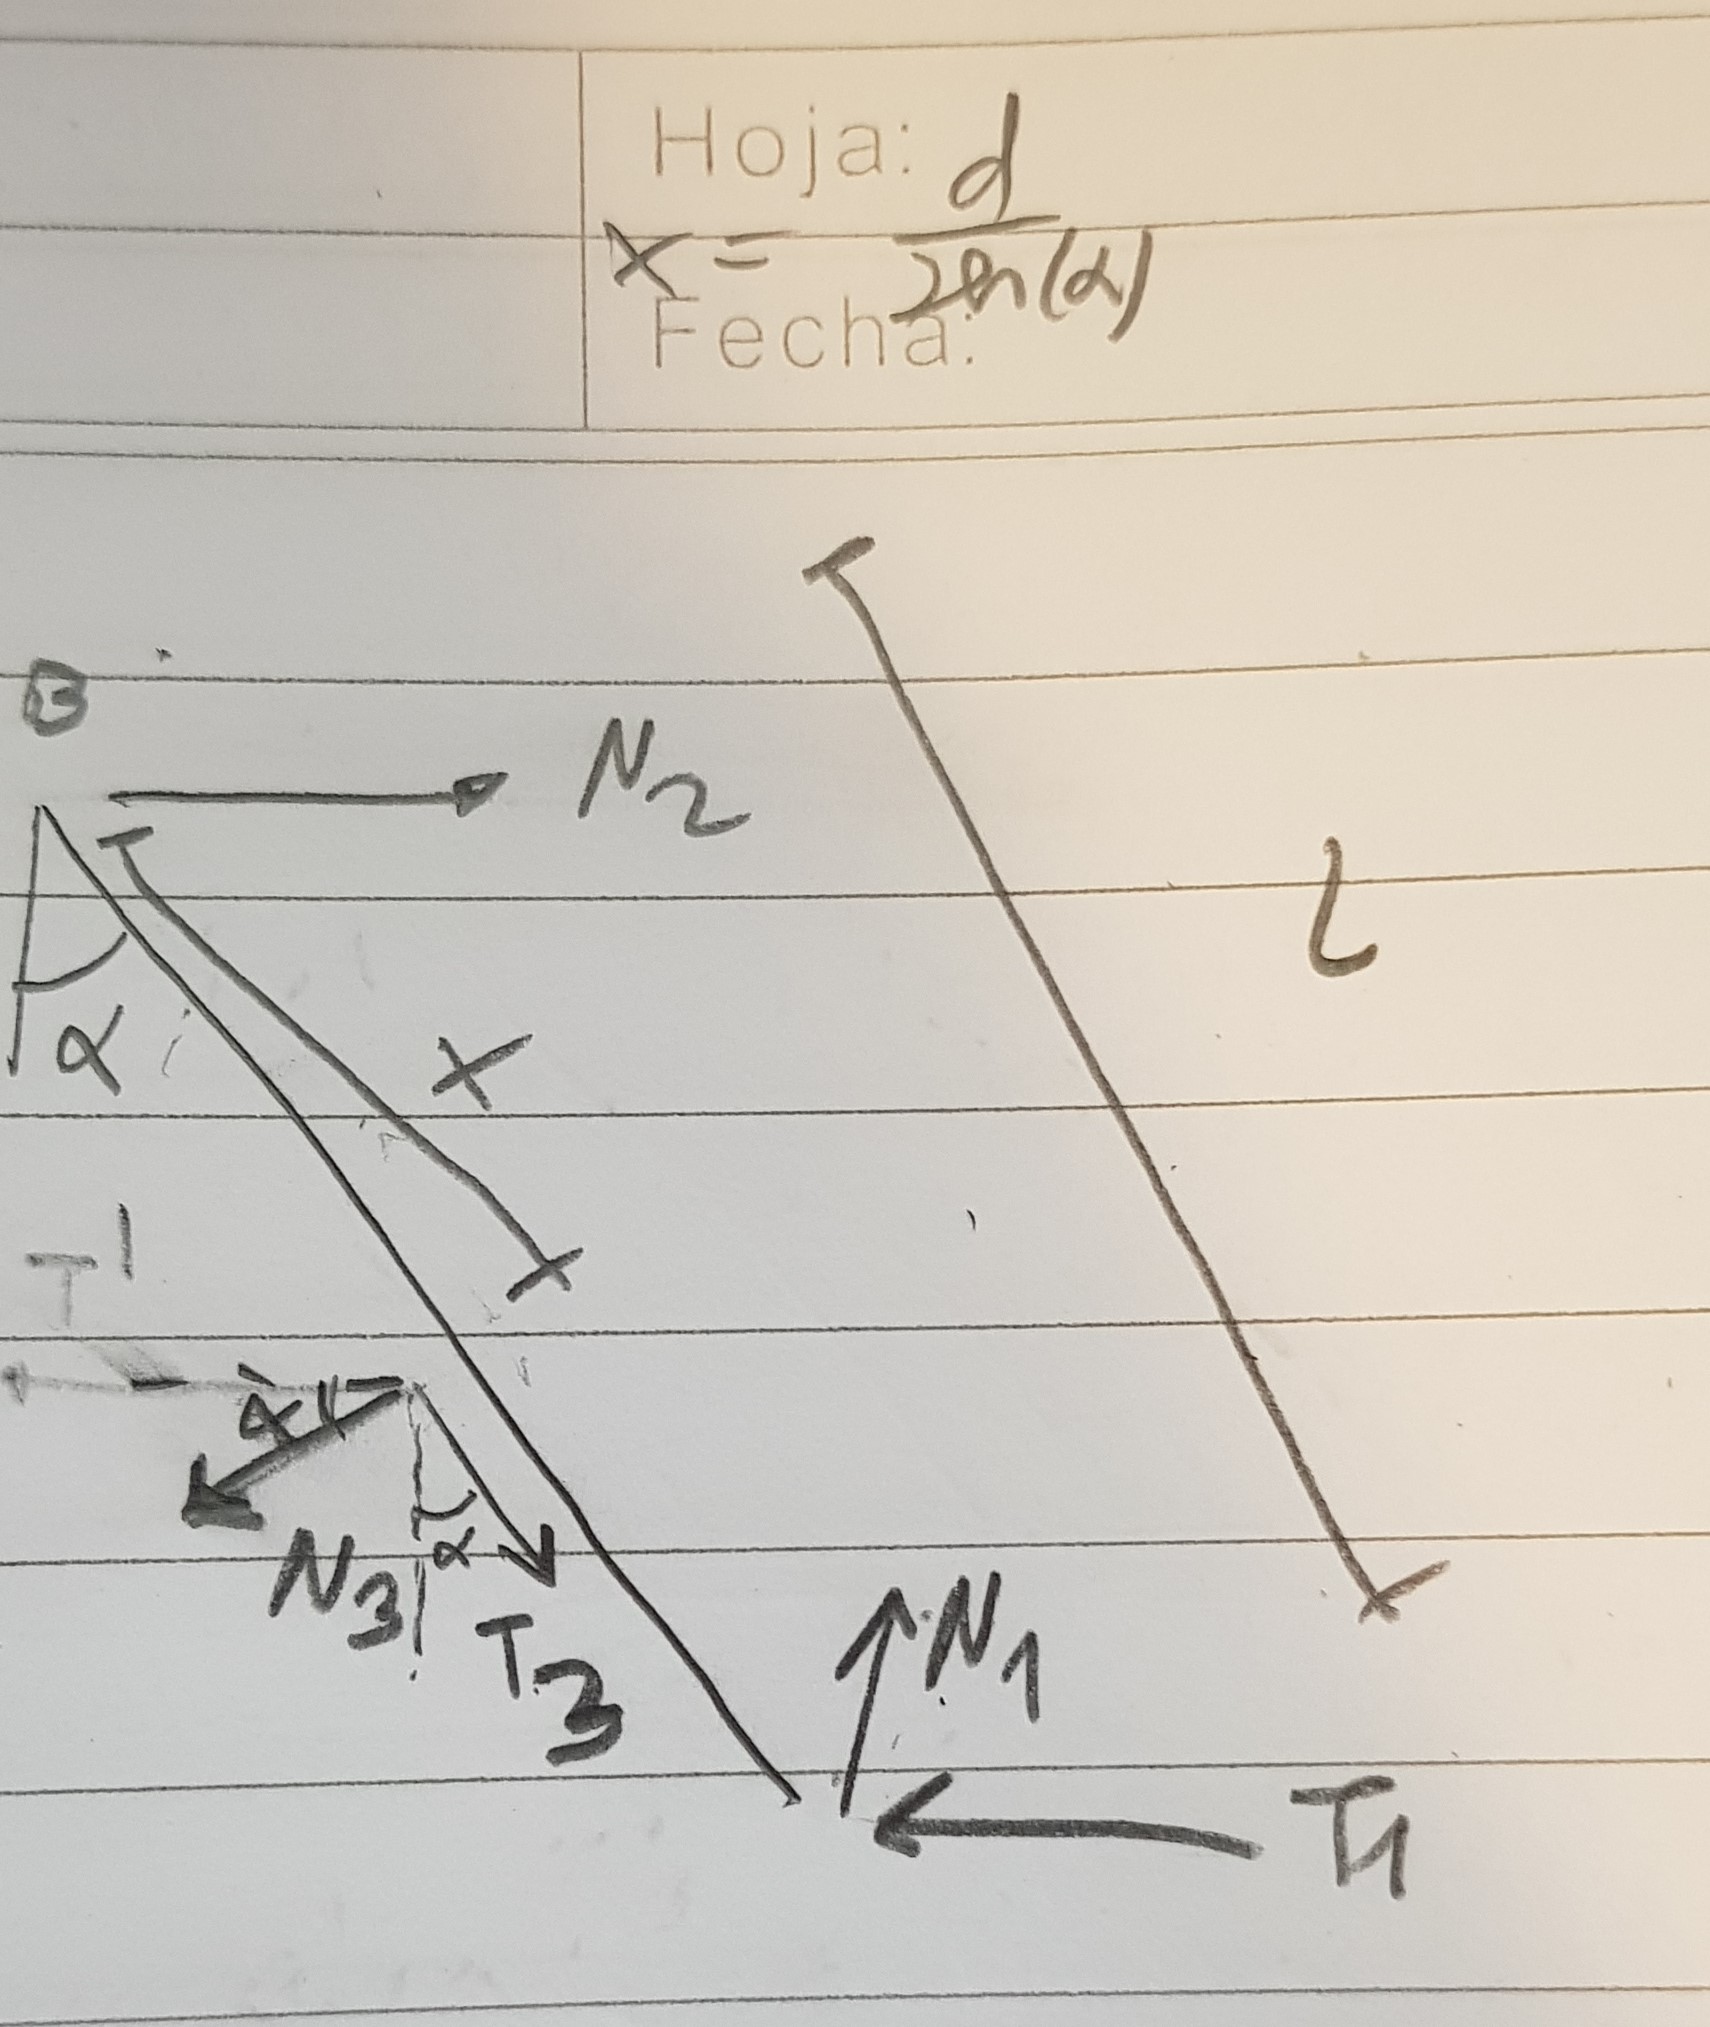 Hoja:
x = d / sen(α)
Fecha:
B
N2
l
α
x
T1
α
N3
α
T3
N1
T1